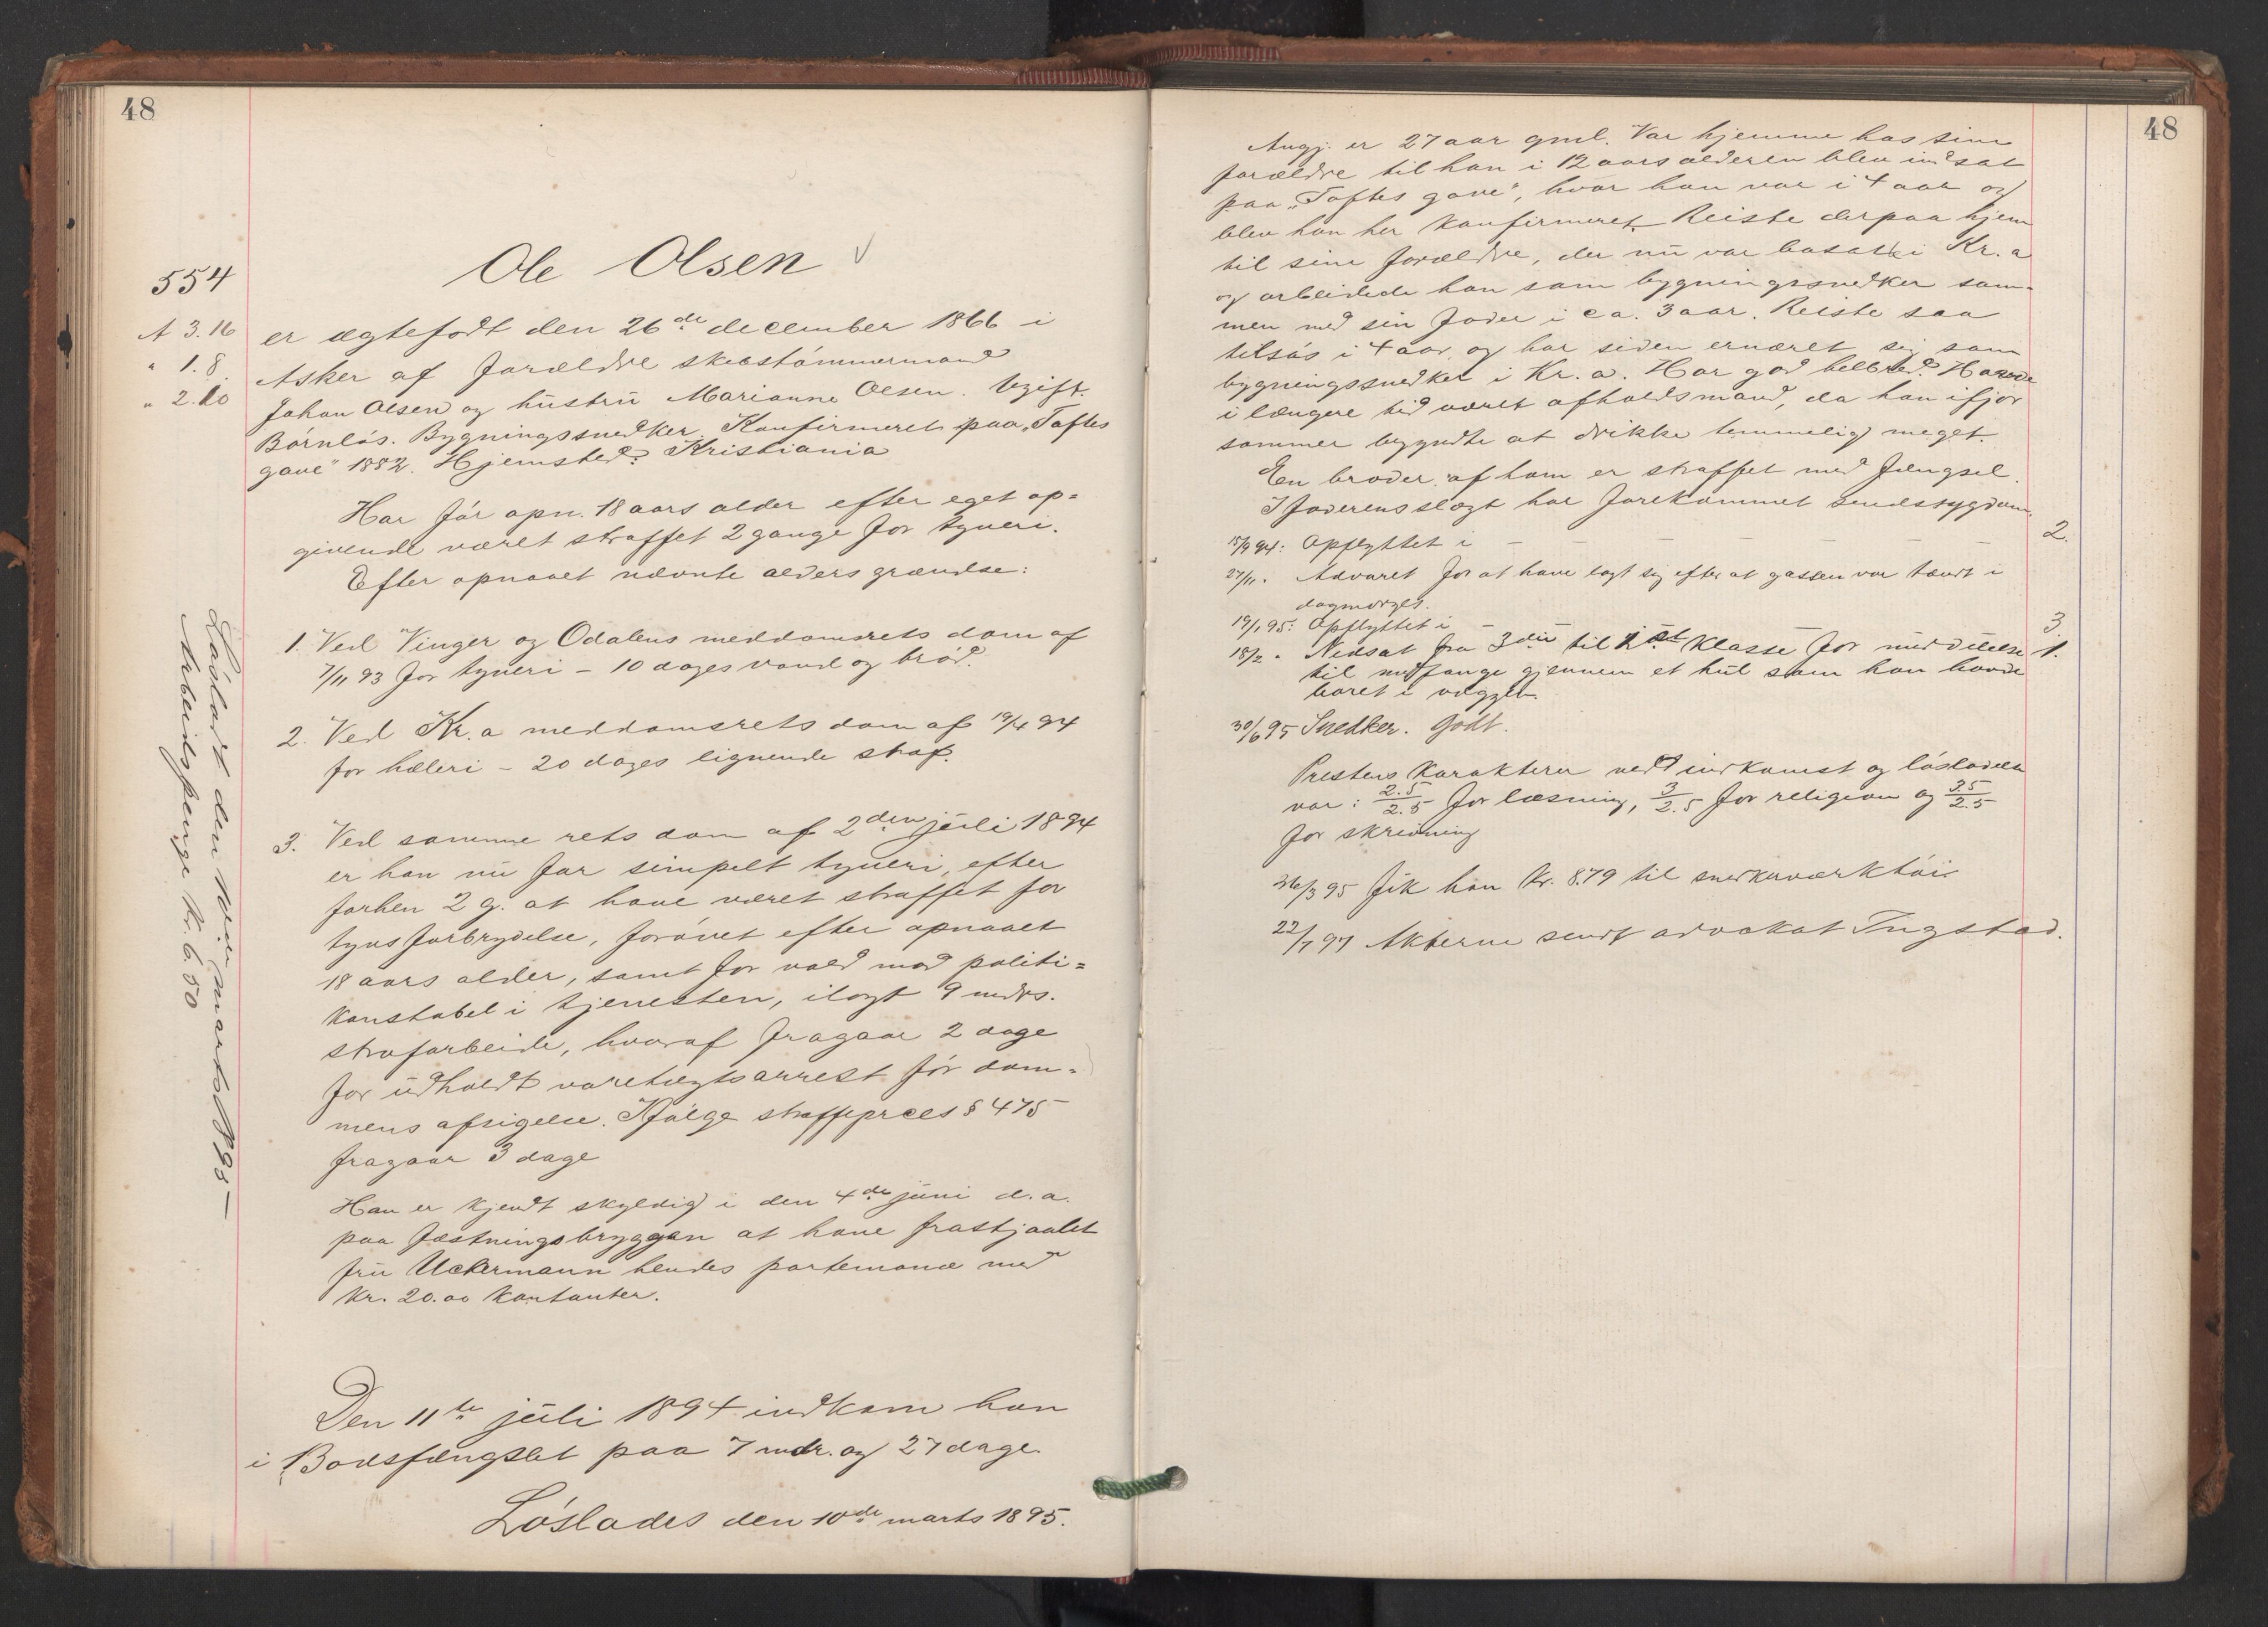 48
554
A 3.16
" 1.8.
" 2.10
Ole Olsen
er ægtefødt den 26de december 1866 i
Asker af forældre skibstømmermand
Johan Olsen og hustru Marianne Olsen. Ugift.
Børnløs. Bygningssnedker. Konfirmeret paa „Toftes
gave" 1882. Hjemsted: Kristiania
Har før opn. 18 aars alder efter eget op=
givende været straffet 2 gange for tyveri.
Efter opnaaet nævnte aldersgrændse:
1. Ved Vinger og Odalens meddomsrets dom af
7/11 93 for tyveri – 10 dages vand og brød.
2. Ved Kr.a meddomsrets dom af 19/4 94
for hæleri – 20 dages lignende straf.
3. Ved samme rets dom af 2den juli 1894
er han nu for simpelt tyveri, efter
forhen 2 g. at have været straffet for
tyvsforbrydelse, forøvet efter opnaaet
18 aars alder, samt for vold mod politi=
konstabel i tjenesten, ilagt 9 mdrs.
strafarbeide, hvoraf fragaar 2 dage
for udholdt varetægtsarrest før dom=
mens afsigelse. Ifølge straffeprces § 475
fragaar 3 dage
Han er kjendt skyldig i den 4de juni d.a.
paa fæstningsbryggen at have frastjaalet
fru Uckermann hendes portemonæ med
Kr. 20.00 kontanter.
Den 11te juli 1894 indkom han
i Bodsfængslet paa 7 mdr. og 27 dage.
Løslades den 10de marts 1895.
Løsladt den 10de marts 1895
Arbeidspenge kr. 6.50
48
Angj. er 27 aar gml. Var hjemme hos sine
forældre til han i 12 aars alderen blev indsat
paa „Toftes gave", hvor han var i 4 aar og
blev han her konfirmeret. Reiste derpaa hjem
til sine forældre, der nu var bosatte i Kr.a
og arbeidede han som bygningssnedker sam-
men med sin fader i ca. 3 aar. Reiste saa
tilsøs i 4 aar, og har siden ernæret sig som
bygningssnedker i Kr.a. Har god helbred. Havde
i længere tid været afholdsmand, da han ifjor
sommer begyndte at drikke temmelig meget.
En broder af ham er straffet med fængsel.
I faderens slægt har forekommet sindssygdom.
15/9 94: Opflyttet i – – – – – – 2.
27/11 " Advaret for at have lagt sig efter at gassen var tændt i
dagmorges.
19/1 95: Opflyttet i – – 3.
18/2 " Nedsat fra 3die til 1ste klasse for meddelelse 1.
til medfange gjennem et hul som han havde
boret i væggen.
30/6 95 Snedker. Godt.
Prestens karakterer ved indkomst og løsladelse
var: 2.5/2.5 for læsning, 3/2.5 for religion og 3.5/2.5
for skrivning
26/3 95 fik han kr. 8.79 til snedkerværktøi.
22/7 97 Akterne sendt advokat Tngstad.